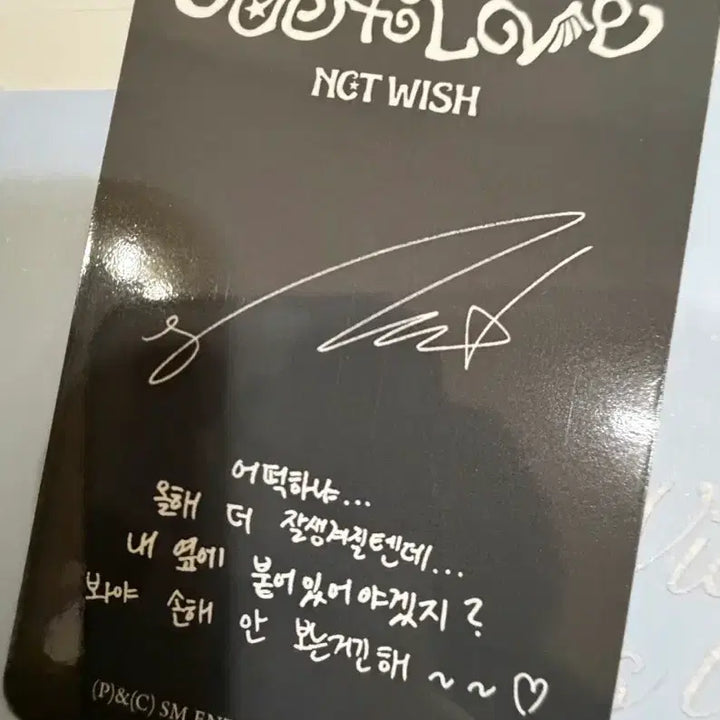 NCT WISH
어떡하냐...
올해 더 잘생겨질텐데...
내 옆에 붙어있어야겠지?
봐야 손해 안 보는거긴해 ~~♡
(P)&(C) SM ENT